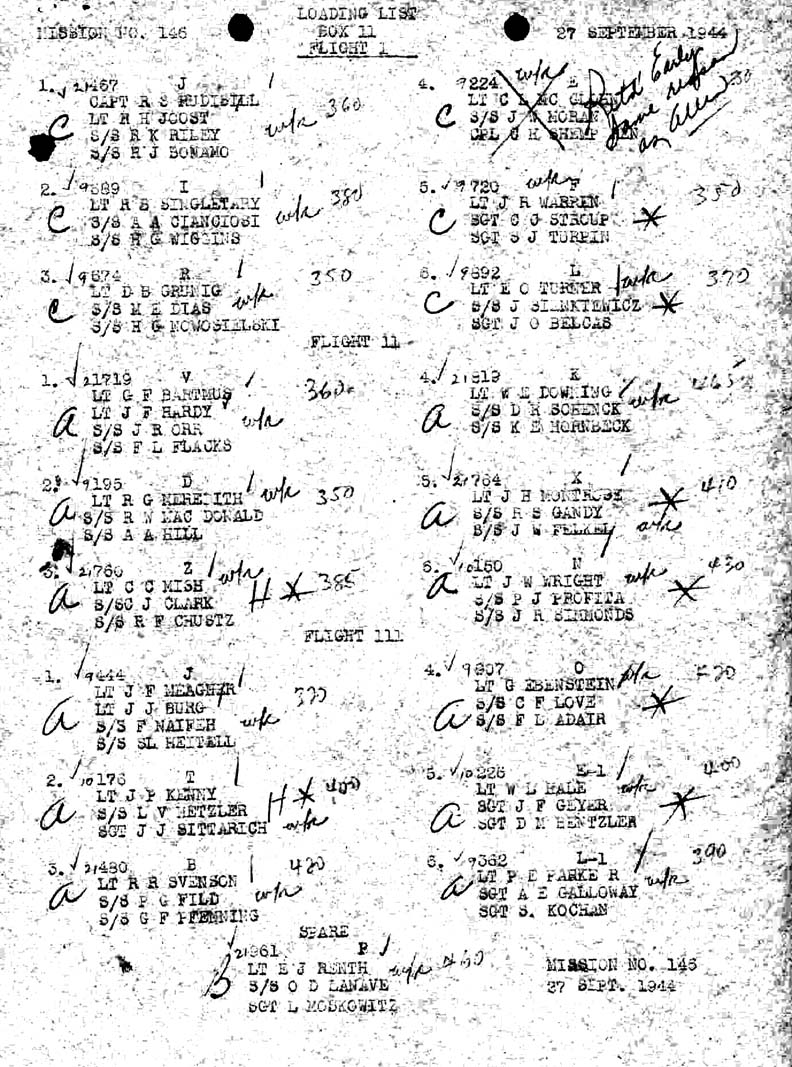 LOADING LIST
MISSION NO. 146 BOX 11 27 SEPTEMBER 1944
FLIGHT 1
1. 21467 J
CAPT R S RUDISILL
LT R H JOOST
S/S R K RILEY
S/S R J BONAMO
C w/k 360
2. 9689 I
LT R S SINGLETARY
S/S A A CIANCIOSI
S/S R G WIGGINS
C w/k 380
3. 9674 R 350
LT D B GRUNIG w/k
S/S M E DIAS
S/S H G NOWOSIELSKI
C
4. 9224 w/k E
LT C L MC
S/S J W MORAN
CPL C H
C
Retd Early
Same reason
as
5. 9720 w/k F 350
LT J R WARREN
SGT C J STROUP
SGT S J TURPIN
C
6. 9892 L
LT E O TURNER w/k 370
S/S J SIENKIEWICZ
SGT J O BELCAS
C
FLIGHT 11
1. 21719 V
LT G F BARTMUS 360
LT J F HARDY
S/S J R ORR w/k
S/S F L FLACKS
a
2. 9195 D
LT R G MEREDITH w/k 350
S/S R W MAC DONALD
S/S A A HILL
a
3. 21760 Z
LT C C MISH w/k
S/SC J CLARK H 385
S/S R F CHUSTZ
a
4. 21819 K
LT W E DOWNING w/k 465
S/S D R SCHENCK
S/S K E HORNBECK
a
5. 21764 X
LT J H MONTROSE 410
S/S R S GANDY
S/S J W FELKEL w/k
a
6. 10150 N
LT J W WRIGHT w/k 430
S/S P J PROFITA
S/S J R SIMMONDS
a
FLIGHT 111
1. 9444 J
LT J F MEAGHER 370
LT J J BURG
S/S F NAIFEH w/k
S/S SL HEITELL
a
2. 10176 T
LT J P KENNY H 400
S/S L V HETZLER
SGT J J SITTARICH w/k
a
3. 21480 B 420
LT R R SVENSON
S/S P G FILD w/k
S/S G F PFENNING
a
4. 9807 O
LT G EBENSTEIN w/k
S/S C F LOVE
S/S F L ADAIR
a
5. 10226 E-1 400
LT W L HALE w/k
SGT J F GEYER
SGT D M HENTZLER
a
6. 9362 L-1 390
LT P E PARKE R w/k
SGT A E GALLOWAY
SGT S. KOCHAN
a
SPARE
21961 P
LT E J RENTH w/k 460
S/S O D LANAVE
SGT L MOSKOWITZ
B
MISSION NO. 146
27 SEPT. 1944